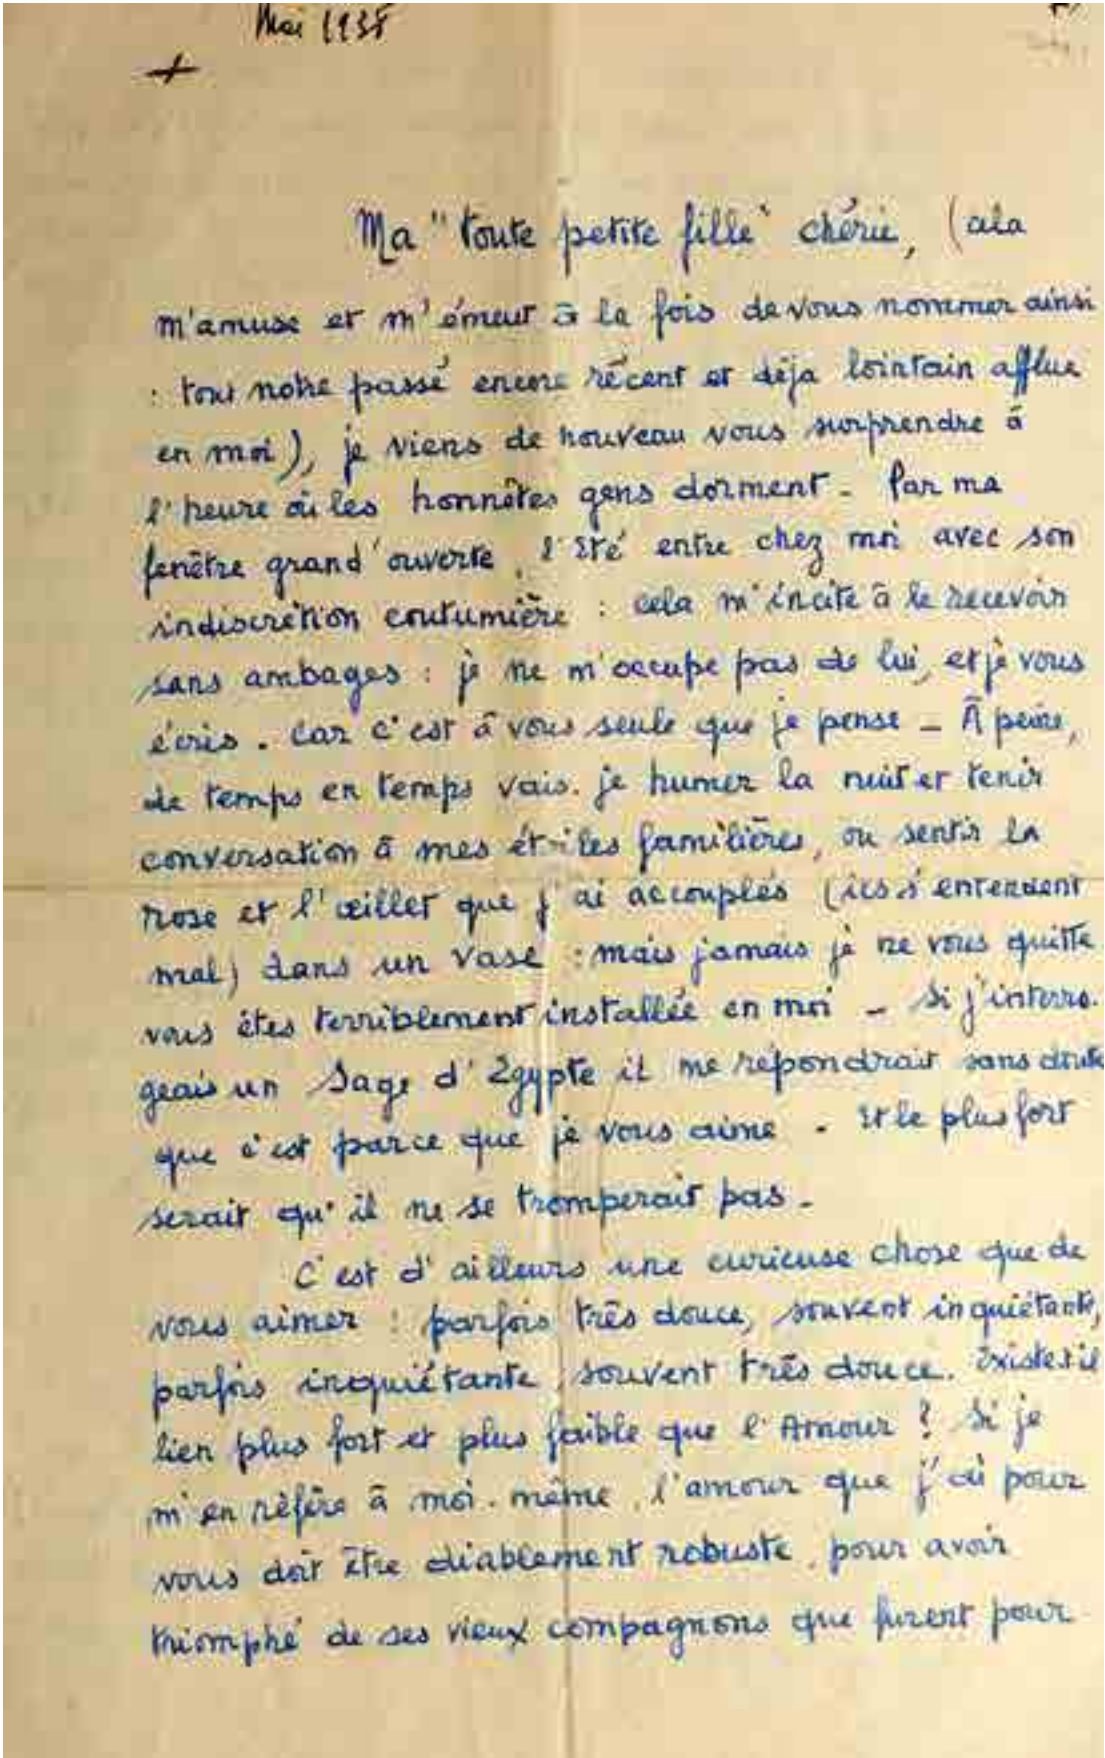 Mai 1938
+
Ma "toute petite fille" chérie, (cela
m'amuse et m'émeut à la fois de vous nommer ainsi
: tout notre passé encore récent et déja lointain afflue
en moi), je viens de nouveau vous surprendre à
l'heure où les honnêtes gens dorment - Par ma
fenêtre grand'ouverte, l'Eté entre chez moi avec son
indiscrétion coutumière : cela m'incite à le recevoir
sans ambages : je ne m'occupe pas de lui, et je vous
écris. Car c'est à vous seule que je pense - À peine,
de temps en temps vais-je humer la nuit et tenir
conversation à mes étoiles familières, ou sentir la
rose et l'œillet que j'ai accouplés (ils s'entendent
mal) dans un vase : mais jamais je ne vous quitte
vous êtes terriblement installée en moi - Si j'interro-
geais un Sage d'Egypte il me répondrait sans doute
que c'est parce que je vous aime . Et le plus fort
serait qu'il ne se tromperait pas -
C'est d'ailleurs une curieuse chose que de
vous aimer : parfois très douce, souvent inquiétante,
parfois inquiétante, souvent très douce. Existe-t-il
lien plus fort et plus faible que l'Amour ? Si je
m'en réfère à moi-même, l'amour que j'ai pour
vous doit être diablement robuste, pour avoir
triomphé de ses vieux compagnons que furent pour